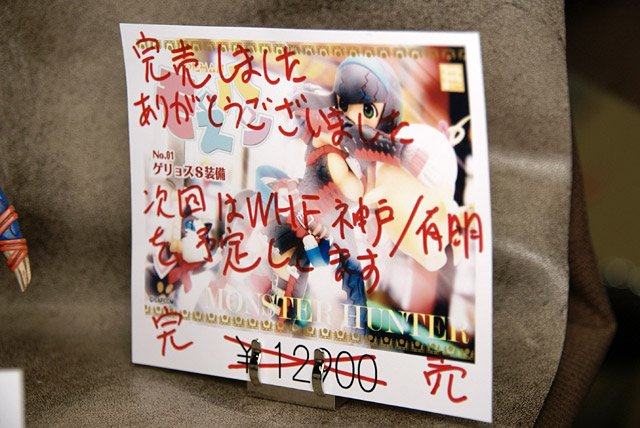 完売しました
ありがとうございました
No.01
ゲリョスS装備
次回はWHF 神戸/有明
を予定してます
MONSTER HUNTER
完
¥12900
売